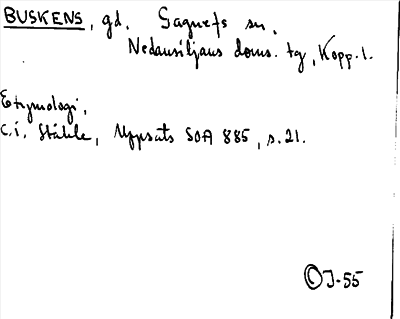 BUSKENS, gd. Gagnefs sn,
Nedansiljans doms. tg, Kopp. l.
Etymologi,
C.I. Ståhle, Uppsats SOA 885, s. 21.
© J-55